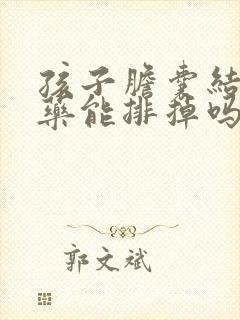 孩子膽囊結
藥能排掉嗎
郭文斌